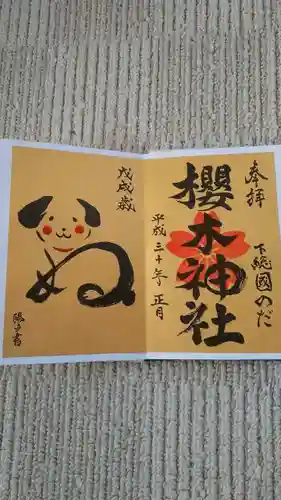 奉拝
下総國のだ
櫻木神社
平成三十年 正月
戊戌歳
ぬ